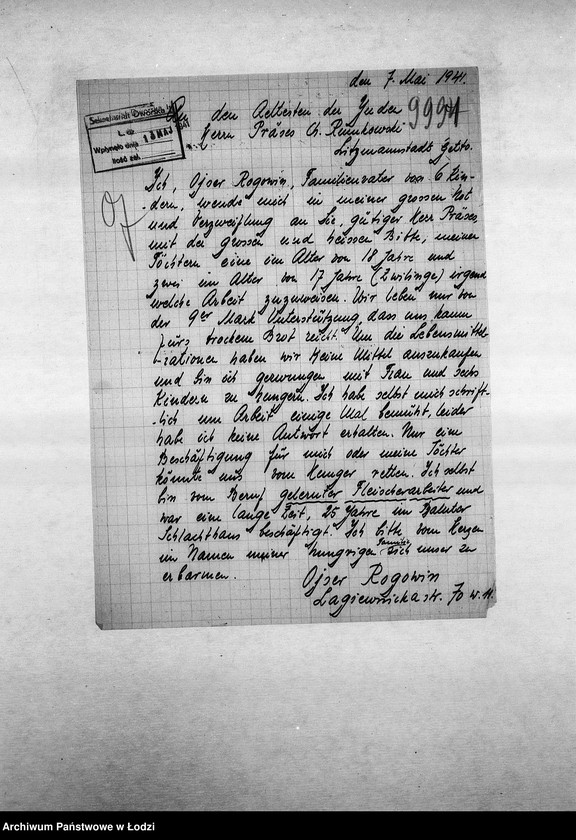 den 7. Mai 1941.
An den Aeltesten der Juden
9994
Herrn Präses Ch. Rumkowski
Litzmannstadt Getto.
Sekretariat Dworska
L. dz.
Wpłynęło dnia 13 MAJ
Ilość zał.
Ich, Ojser Rogowin, Familienvater von 6 Kin-
dern, wende mich in meiner grossen Not
und Verzweiflung an Sie, gütiger Herr Präses
mit der grossen und heissen Bitte, meinen
Töchtern eine im Alter von 18 Jahre und
zwei im Alter von 17 Jahre (Zwilinge) irgend
welche Arbeit zuzuweisen. Wir leben nur von
der 9er Mark Unterstützung, dass uns kaum
fürs trockene Brot reicht. Um die Lebensmittel-
-rationen haben wir keine Mittel auszukaufen
und bin ich gezwungen mit Frau und sechs
Kindern zu hungern. Ich habe selbst mich schrift-
-lich um Arbeit einige Mal bemüht, leider
habe ich keine Antwort erhalten. Nur eine
Beschäftigung für mich oder meine Töchter
könnte uns vom Hunger retten. Ich selbst
bin vom Beruf gelernter Fleischerarbeiter und
war eine lange Zeit, 25 Jahre im Baluter
Schlachthaus beschäftigt. Ich bitte vom Herzen
im Namen meiner hungrigen Familie sich unser zu
erbarmen.
Ojser Rogowin
Lagiewnicka str. 70 w. 11.
Archiwum Państwowe w Łodzi